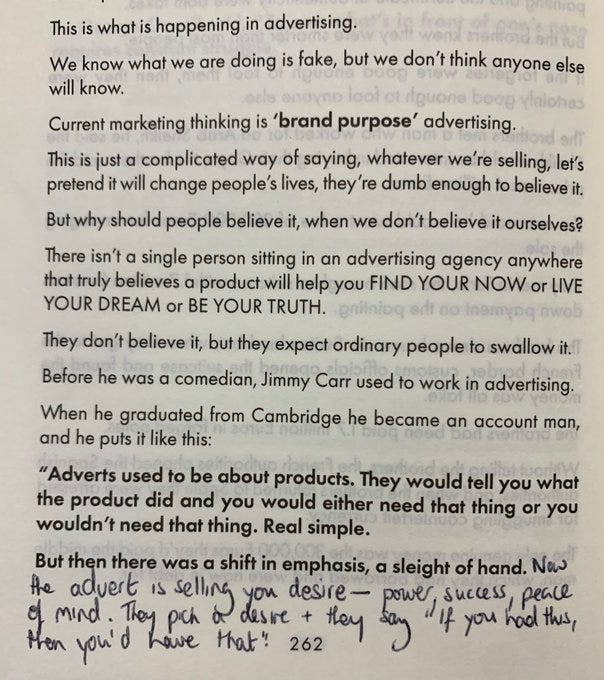 This is what is happening in advertising.
We know what we are doing is fake, but we don't think anyone else
will know.
Current marketing thinking is 'brand purpose' advertising.
This is just a complicated way of saying, whatever we're selling, let's
pretend it will change people's lives, they're dumb enough to believe it.
But why should people believe it, when we don't believe it ourselves?
There isn't a single person sitting in an advertising agency anywhere
that truly believes a product will help you FIND YOUR NOW or LIVE
YOUR DREAM or BE YOUR TRUTH.
They don't believe it, but they expect ordinary people to swallow it.
Before he was a comedian, Jimmy Carr used to work in advertising.
When he graduated from Cambridge he became an account man,
and he puts it like this:
"Adverts used to be about products. They would tell you what
the product did and you would either need that thing or you
wouldn't need that thing. Real simple.
But then there was a shift in emphasis, a sleight of hand. Now
the advert is selling you desire – power, success, peace
of mind. They pick a desire + they say "If you had this,
then you'd have that".
262